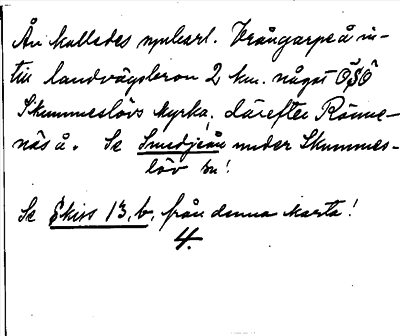 Ån kallades uppenbarl. Vrångarpeå in-
till landsvägsbron 2 km. något ÖSÖ
Skummeslövs kyrka, därefter Rönne-
näs å. Se Smedjeån under Skummes-
löv sn!
Se Skiss 13, b, från denna karta!
4.